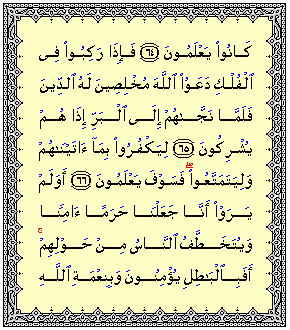 كَانُوا۟ يَعْلَمُونَ ۝٦٤ فَإِذَا رَكِبُوا۟ فِى
ٱلْفُلْكِ دَعَوُا۟ ٱللَّهَ مُخْلِصِينَ لَهُ ٱلدِّينَ
فَلَمَّا نَجَّىٰهُمْ إِلَى ٱلْبَرِّ إِذَا هُمْ
يُشْرِكُونَ ۝٦٥ لِيَكْفُرُوا۟ بِمَآ ءَاتَيْنَٰهُمْ
وَلِيَتَمَتَّعُوا۟ۖ فَسَوْفَ يَعْلَمُونَ ۝٦٦ أَوَلَمْ
يَرَوْا۟ أَنَّا جَعَلْنَا حَرَمًا ءَامِنًا
وَيُتَخَطَّفُ ٱلنَّاسُ مِنْ حَوْلِهِمْۚ
أَفَبِٱلْبَٰطِلِ يُؤْمِنُونَ وَبِنِعْمَةِ ٱللَّهِ